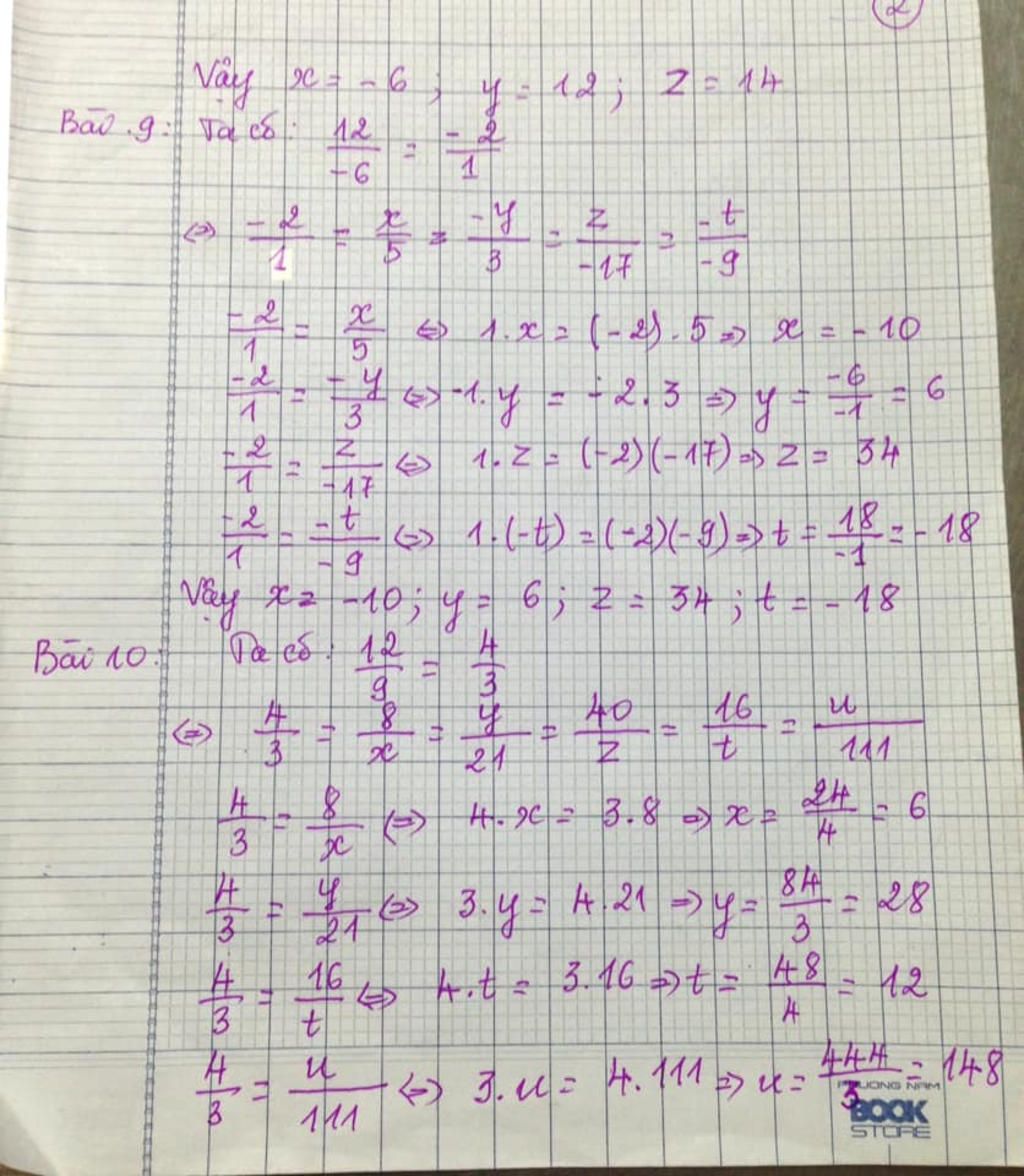 2
Vậy x = - 6 ; y = 12 ; z = 14
Bài 9 : Ta có : 12/-6 = -2/1
<=> -2/1 = x/5 = -y/3 = z/-17 = -t/-9
-2/1 = x/5 <=> 1.x = (-2).5 => x = -10
-2/1 = -y/3 <=> -1.y = -2.3 => y = -6/-1 = 6
-2/1 = z/-17 <=> 1.z = (-2)(-17) => z = 34
-2/1 = -t/-9 <=> 1.(-t) = (-2)(-9) => t = 18/-1 = -18
Vậy x = -10 ; y = 6 ; z = 34 ; t = -18
Bài 10 : Ta có : 12/9 = 4/3
<=> 4/3 = 8/x = y/21 = 40/z = 16/t = u/111
4/3 = 8/x <=> 4.x = 3.8 => x = 24/4 = 6
4/3 = y/21 <=> 3.y = 4.21 => y = 84/3 = 28
4/3 = 16/t <=> 4.t = 3.16 => t = 48/4 = 12
4/3 = u/111 <=> 3.u = 4.111 => u = 444/3 = 148
PHUONG NAM
BOOK
STORE